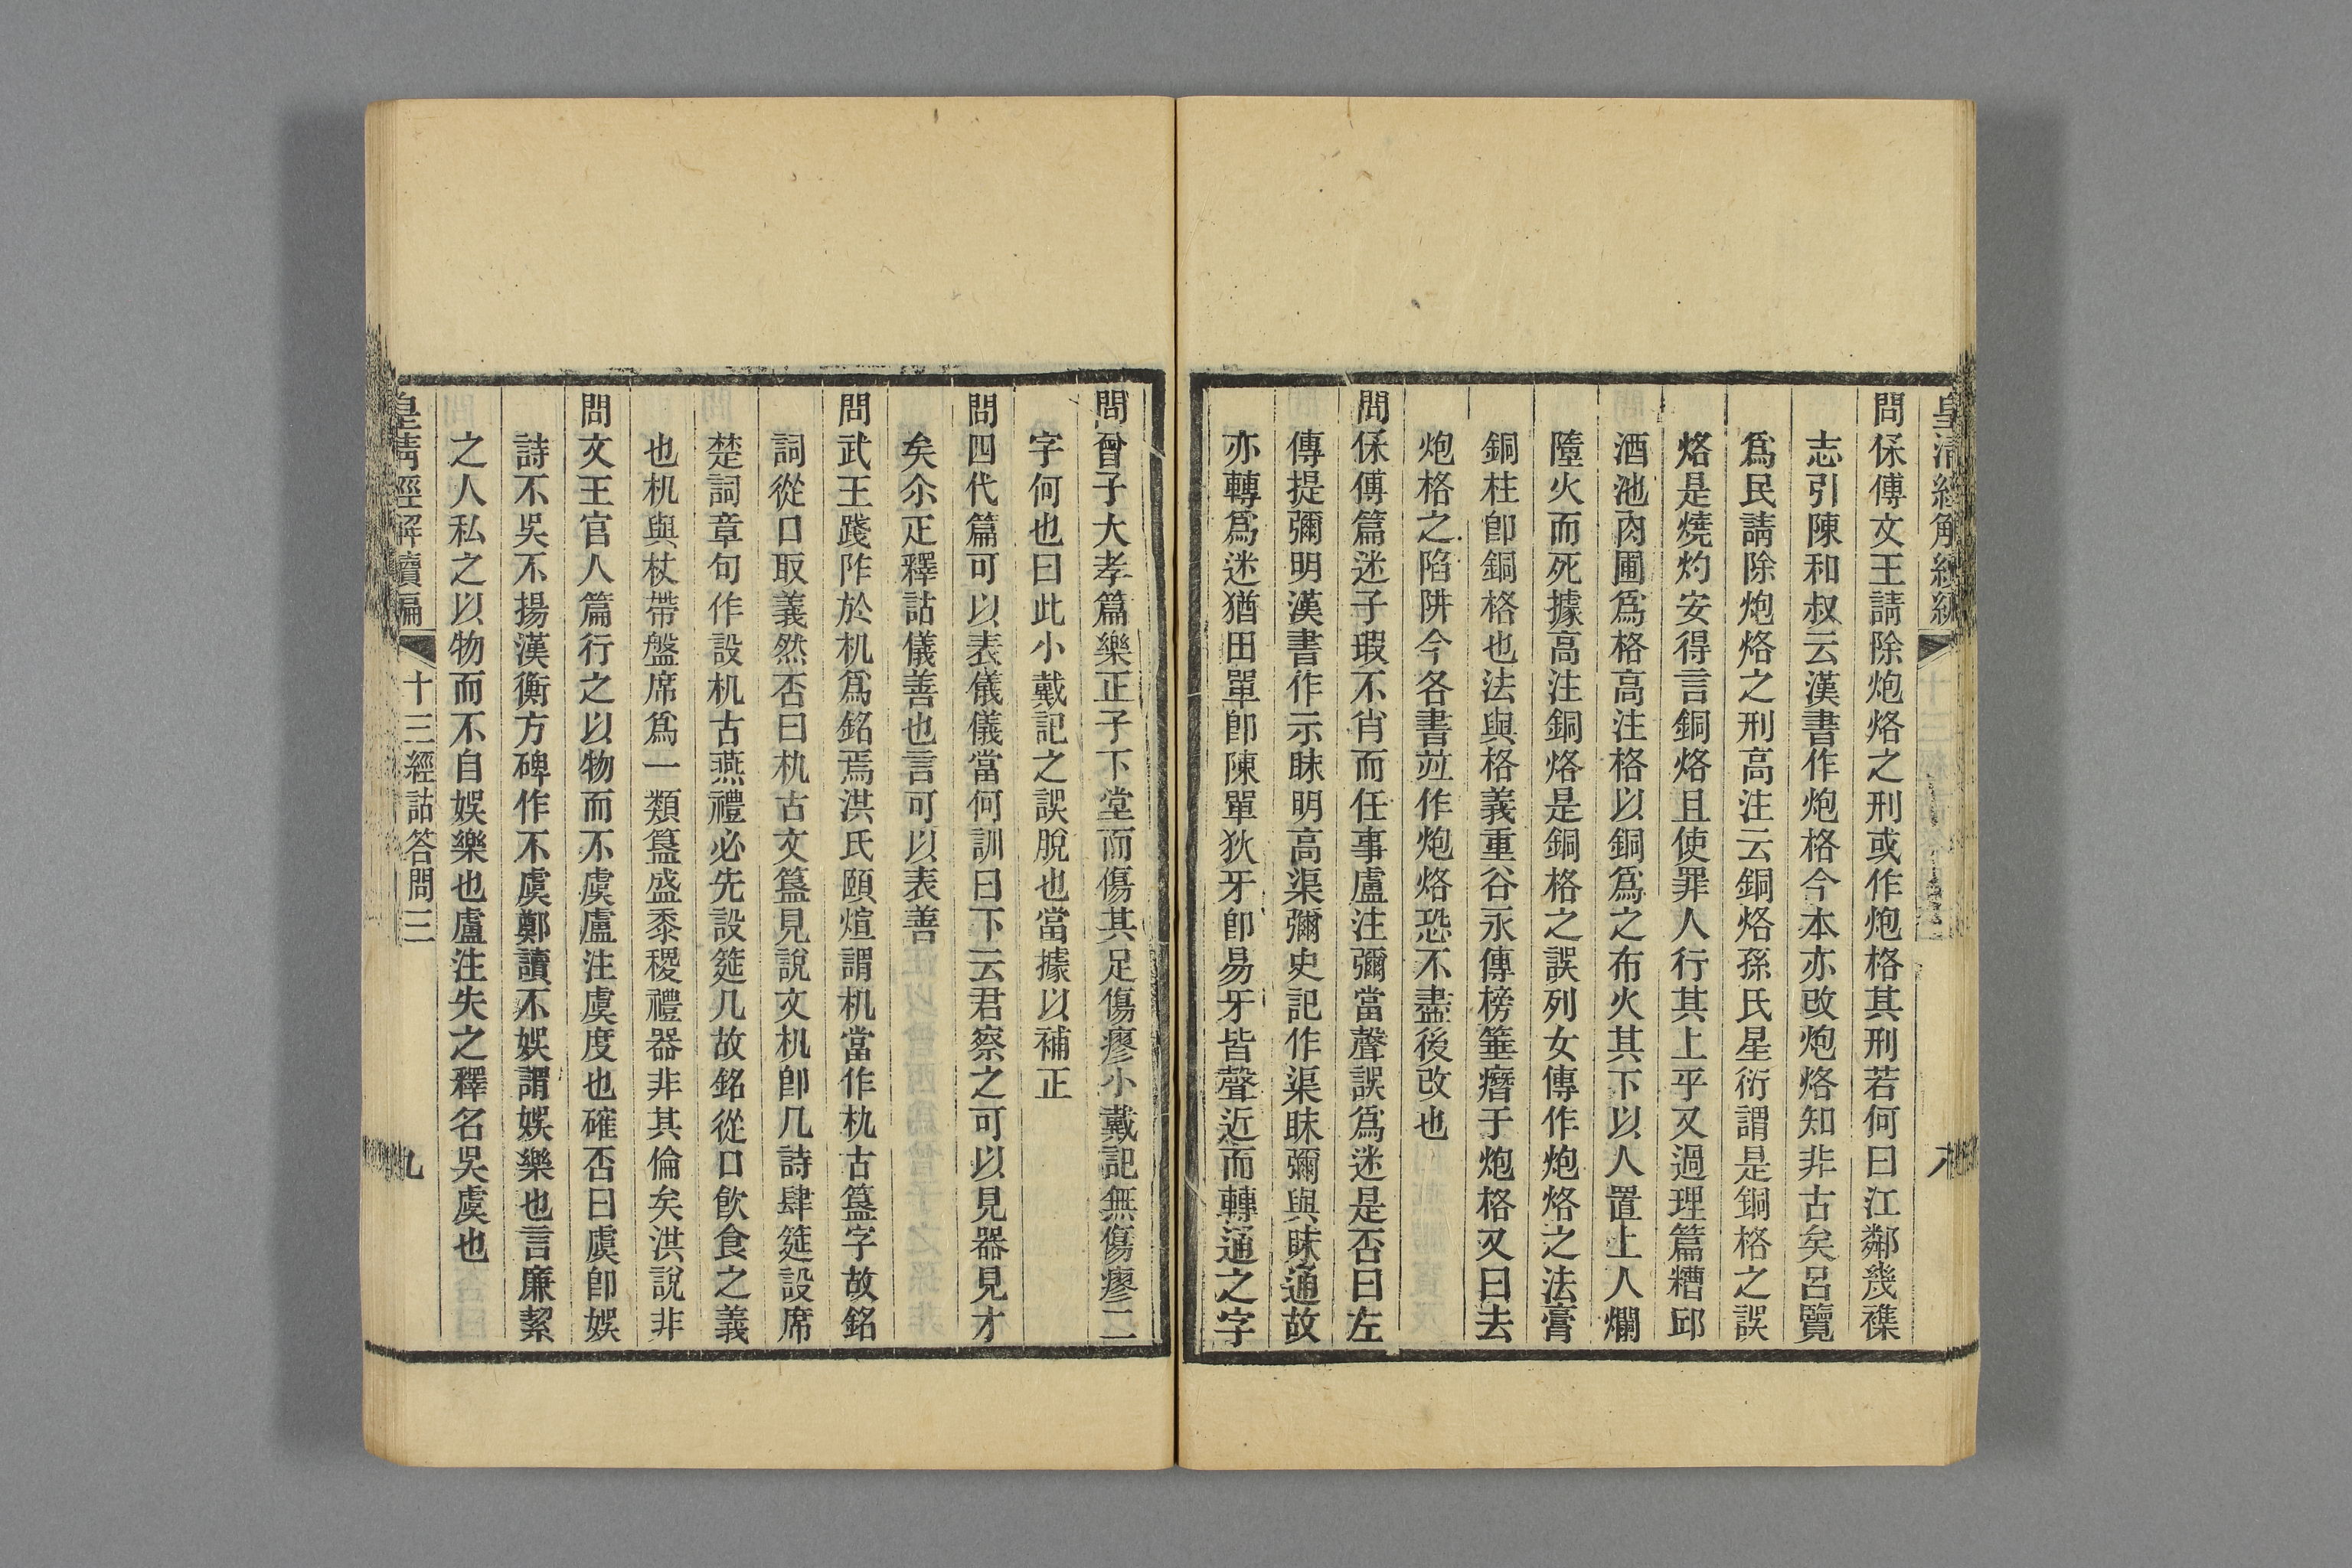 皇清經解續編
問保傅文王請除炮烙之刑或作炮格其刑若何曰江鄰幾襍
志引陳和叔云漢書作炮格今本亦改炮烙知非古矣呂覽
爲民請除炮烙之刑高注云銅烙孫氏星衍謂是銅格之誤
烙是燒灼安得言銅烙且使罪人行其上乎又過理篇糟邱
酒池肉圃爲格高注格以銅爲之布火其下以人置上人爛
墮火而死據高注銅烙是銅格之誤列女傳作炮烙之法膏
銅柱卽銅格也法與格義重谷永傳榜箠㿊于炮格又曰去
炮格之陷阱今各書竝作炮烙恐不盡後改也
問保傅篇迷子瑕不肖而任事盧注彌當聲誤爲迷是否曰左
傳提彌明漢書作示眛明高渠彌史記作渠眛彌與眛通故
亦轉爲迷猶田單卽陳單狄牙卽易牙皆聲近而轉通之字
問曾子大孝篇樂正子下堂而傷其足傷瘳小戴記無傷瘳二
字何也曰此小戴記之誤脫也當據以補正
問四代篇可以表儀儀當何訓曰下云君察之可以見器見才
矣尒疋釋詁儀善也言可以表善
問武王踐阼於机爲銘焉洪氏頤煊謂机當作朹古簋字故銘
詞從口取義然否曰朹古文簋見說文机卽几詩肆筵設席
楚詞章句作設机古燕禮必先設筵几故銘從口飮食之義
也机與杖帶盤席爲一類簋盛黍稷禮器非其倫矣洪說非
問文王官人篇行之以物而不虞盧注虞度也確否曰虞卽娛
詩不吳不揚漢衡方碑作不虞鄭讀不娛謂娛樂也言廉絜
之人私之以物而不自娛樂也盧注失之釋名吳虞也
皇淸經解續編
十三經詁答問三
九